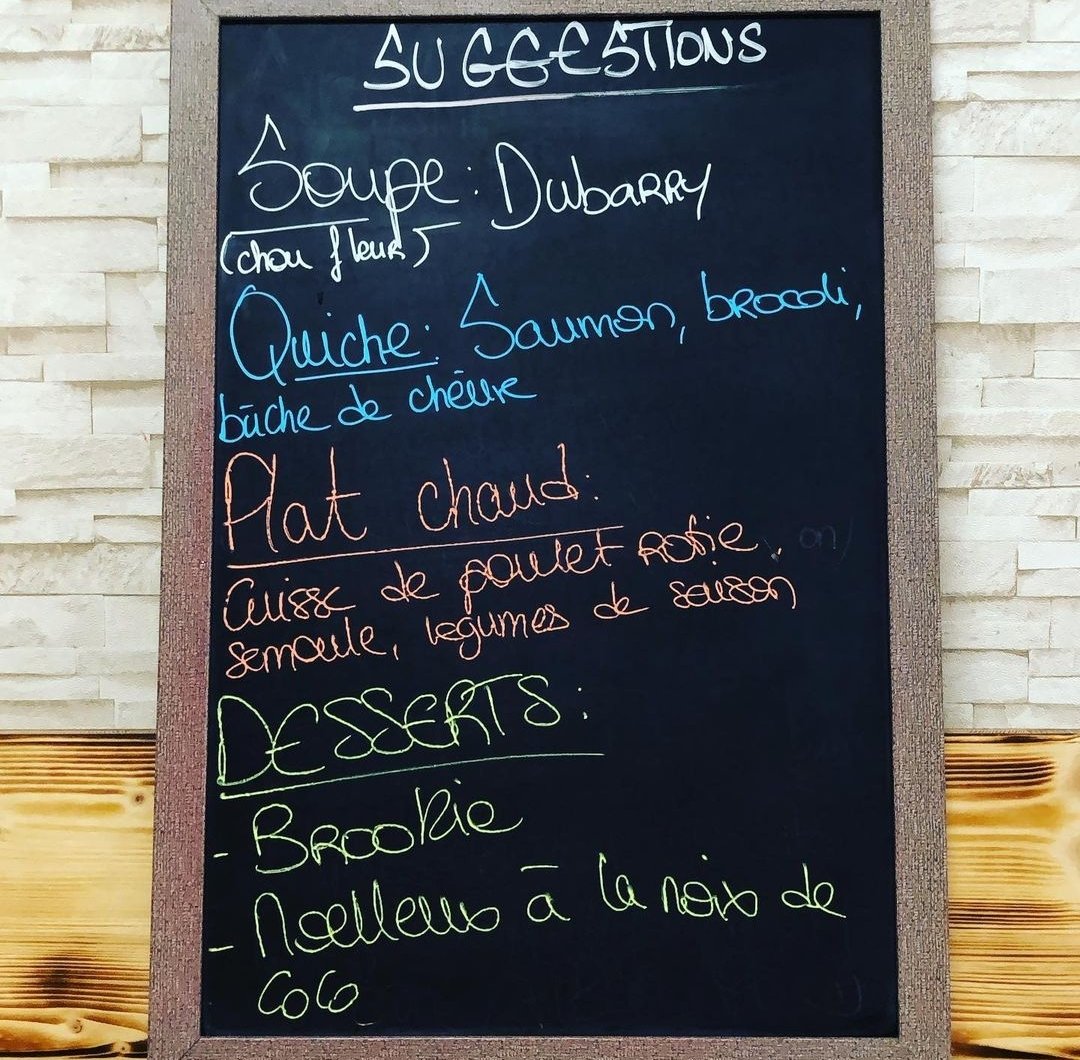 SUGGESTIONS
Soupe : Dubarry
(chou fleur)
Quiche : Saumon, brocoli,
bûche de chèvre
Plat chaud :
Cuisse de poulet rotie,
semoule, légumes de saison
DESSERTS :
- Brookie
- Moelleux à la noix de
coco